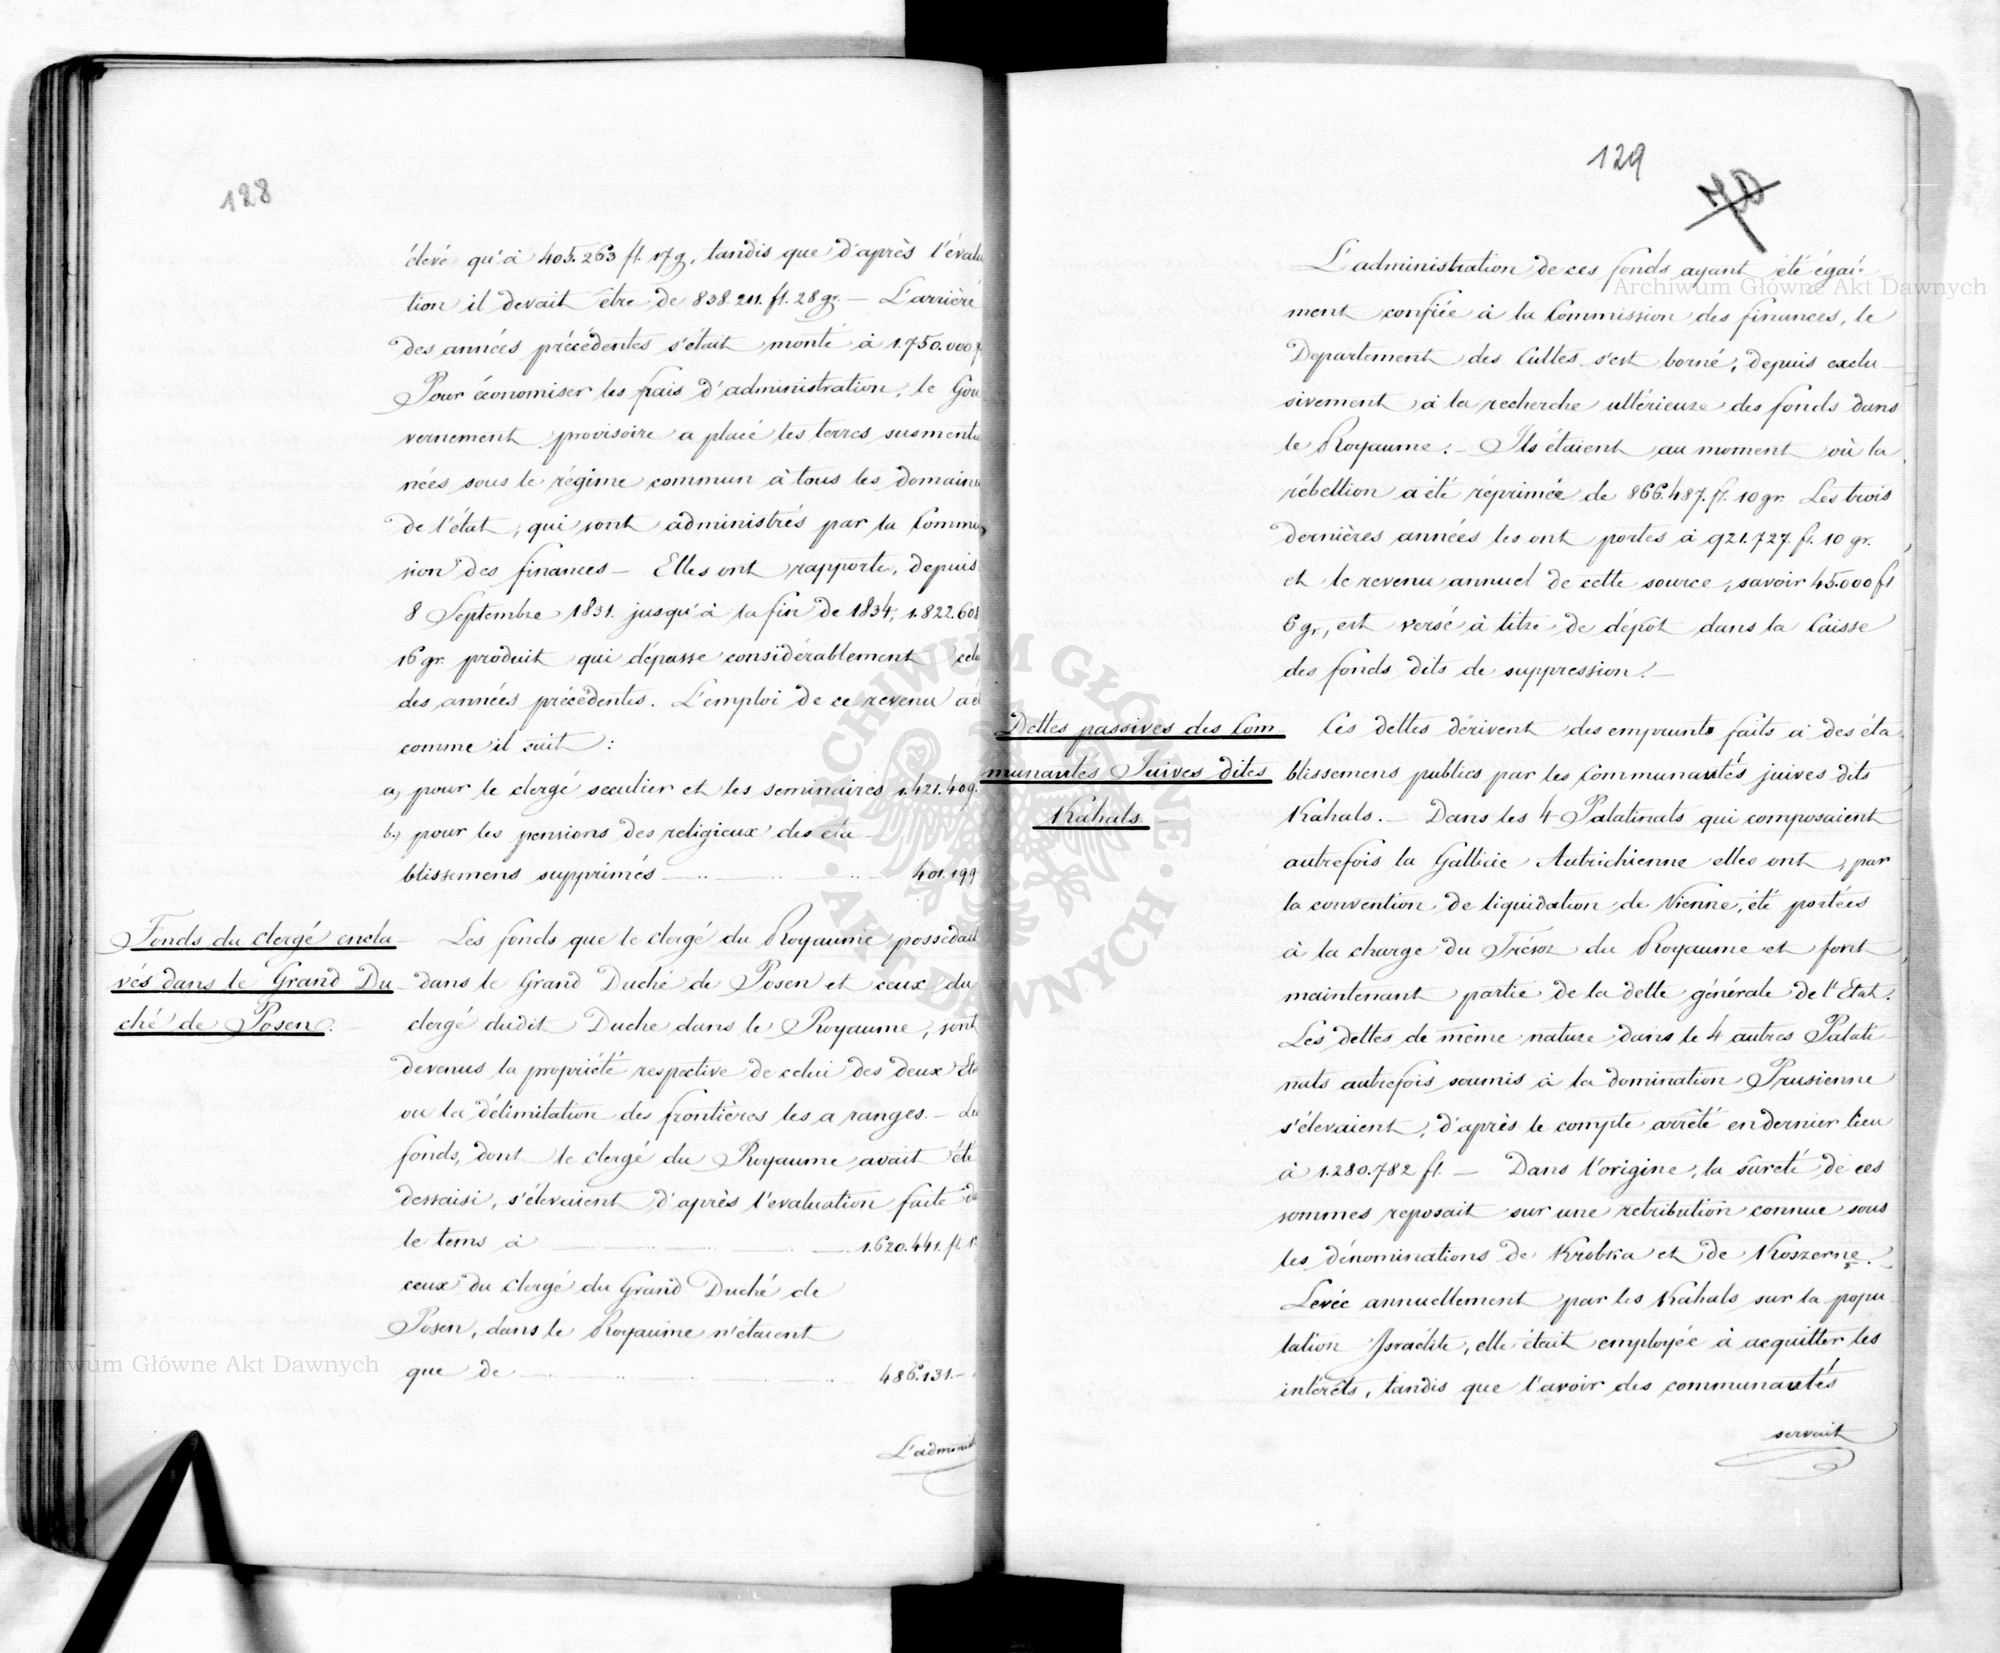 128
élevé qu'à 405.263 fl. 17 g, tandis que d'après l'évalu
tion il devait être de 838.211. fl. 28 gr. — L'arriéré
des années précédentes s'était monté à 1.750.000 f
Pour économiser les frais d'administration, le Gou
vernement provisoire a placé les terres susmentio
nées sous le régime commun à tous les domaine
de l'état, qui sont administrés par la Commis
sion des finances — Elles ont rapporté, depuis
8 Septembre 1831. jusqu'à la fin de 1834, 1.822.608
16 gr. produit qui dépasse considérablement celu
des années précédentes. L'emploi de ce revenu a é
comme il suit :
a) pour le clergé seculier et les seminaires 1.421.409.
b.) pour les pensions des religieux des éta
blissemens supprimés — .. — .. — 401.199
Fonds du clergé encla
vés dans le Grand Du
ché de Posen.
Les fonds que le clergé du Royaume possedait
dans le Grand Duché de Posen et ceux du
clergé dudit Duché dans le Royaume, sont
devenus la propriété respective de celui des deux Eta
ou la délimitation des frontières les a ranges. — Les
fonds, dont le clergé du Royaume avait été
dessaisi, s'élevaient d'après l'evaluation faite da
le tems à — 1.620.441. fl. 1
ceux du clergé du Grand Duché de
Posen, dans le Royaume n'étaient
que de — 486.131.—
L'administ
129
L'administration de ces fonds ayant été égal
ment confiée à la Commission des finances, le
Departement des Cultes s'est borné, depuis exclu
sivement à la recherche ultérieure des fonds dans
le Royaume. — Ils étaient au moment où la
rébellion a été réprimée de 866.487. fl. 10 gr. Les trois
dernières années les ont portes à 921.727. fl. 10 gr.
et le revenu annuel de cette source, savoir 45.000 fl
6 gr, est versé à titre de dépôt dans la Caisse
des fonds dits de suppression. —
Dettes passives des Com
munautes Juives dites
Kahals
Ces dettes dérivent des emprunts faits à des éta
blissemens publics par les Communautés juives dits
Kahals. — Dans les 4 Palatinats qui composaient
autrefois la Gallicie Autrichienne elles ont, par
la convention de liquidation de Vienne, été portées
à la charge du Trésor du Royaume et font
maintenant partie de la dette générale de l'Etat.
Les dettes de même nature dans le 4 autres Palati
nats autrefois soumis à la domination Prusienne
s'élevaient, d'après le compte arrêté en dernier lieu
à 1.280.782 fl. — Dans l'origine, la sûreté de ces
sommes reposait sur une retribution connue sous
les dénominations de Krobka et de Koszerne.
Levée annuellement par les Kahals sur la popu
lation Israélite, elle était employée à acquitter les
intérêts, tandis que l'avoir des communautés
servait
Archiwum Główne Akt Dawnych
Archiwum Główne Akt Dawnych
ARCHIWUM GŁÓWNE AKT DAWNYCH